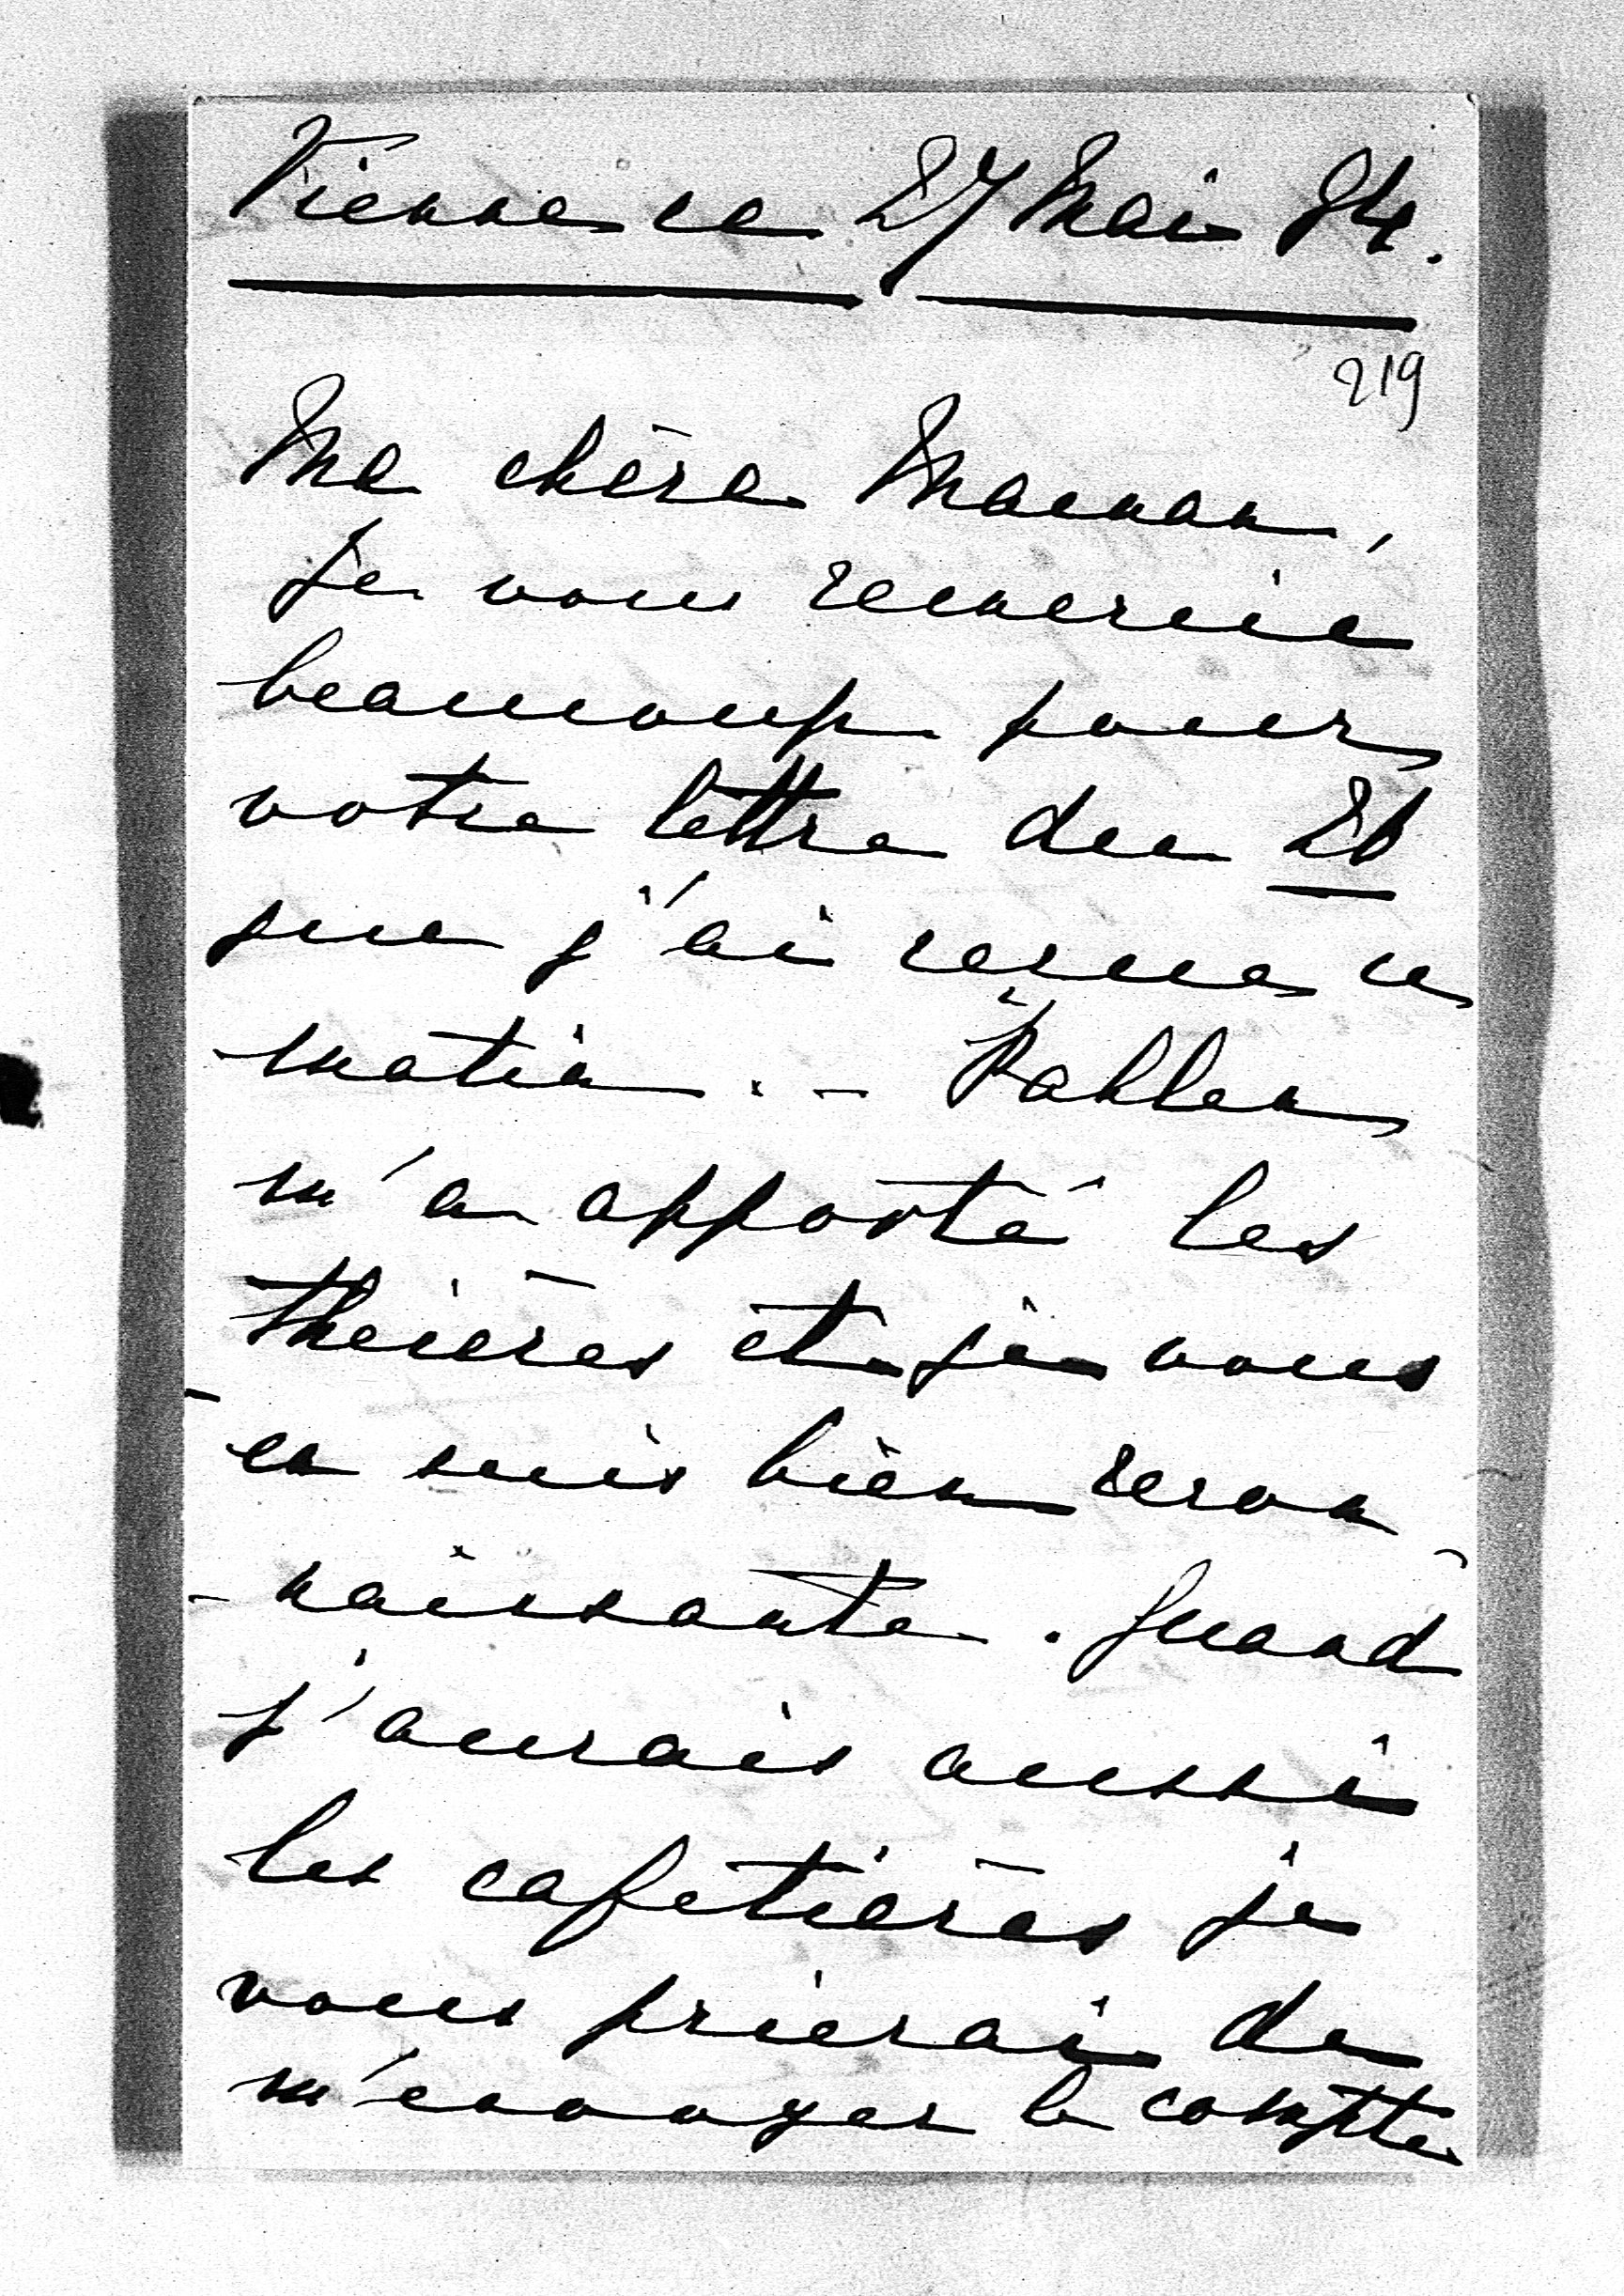 Vienne ce 27 Mai 84.
219
Ma chère Maman,
je vous remercie
beaucoup pour
votre lettre du
que j'ai reçue ce
matin. – Pahlen
m'a apporté les
theières et je vous
en suis bien recon
- naissante. Quand
j'aurais aussi
les cafetières je
vous prierai de
m'envoyer le compte